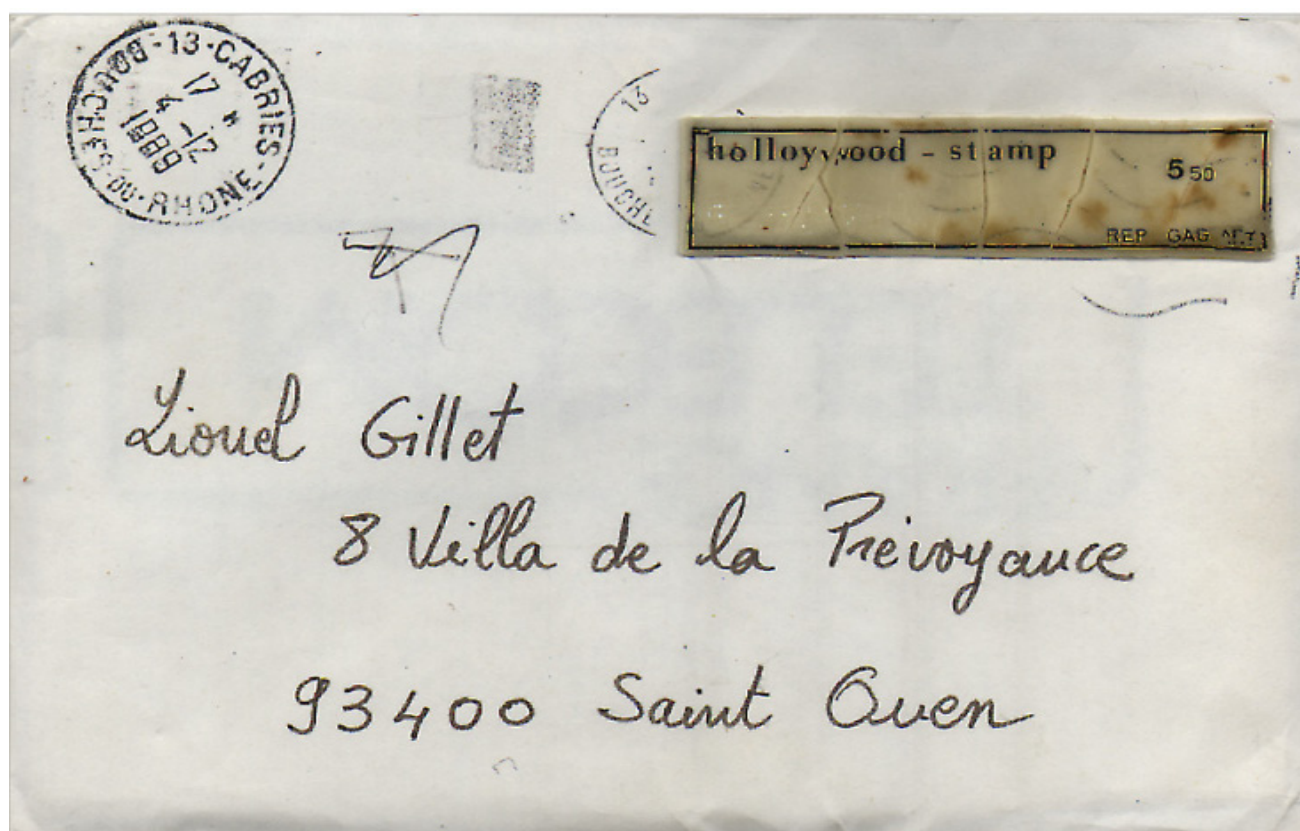 13 - CABRIES - BOUCHES-DU-RHONE
17 H
4 -12
1989
13
BOUCHE
holloywood - stamp
5 50
REP GAG
Lionel Gillet
8 Villa de la Prévoyance
93400 Saint Ouen